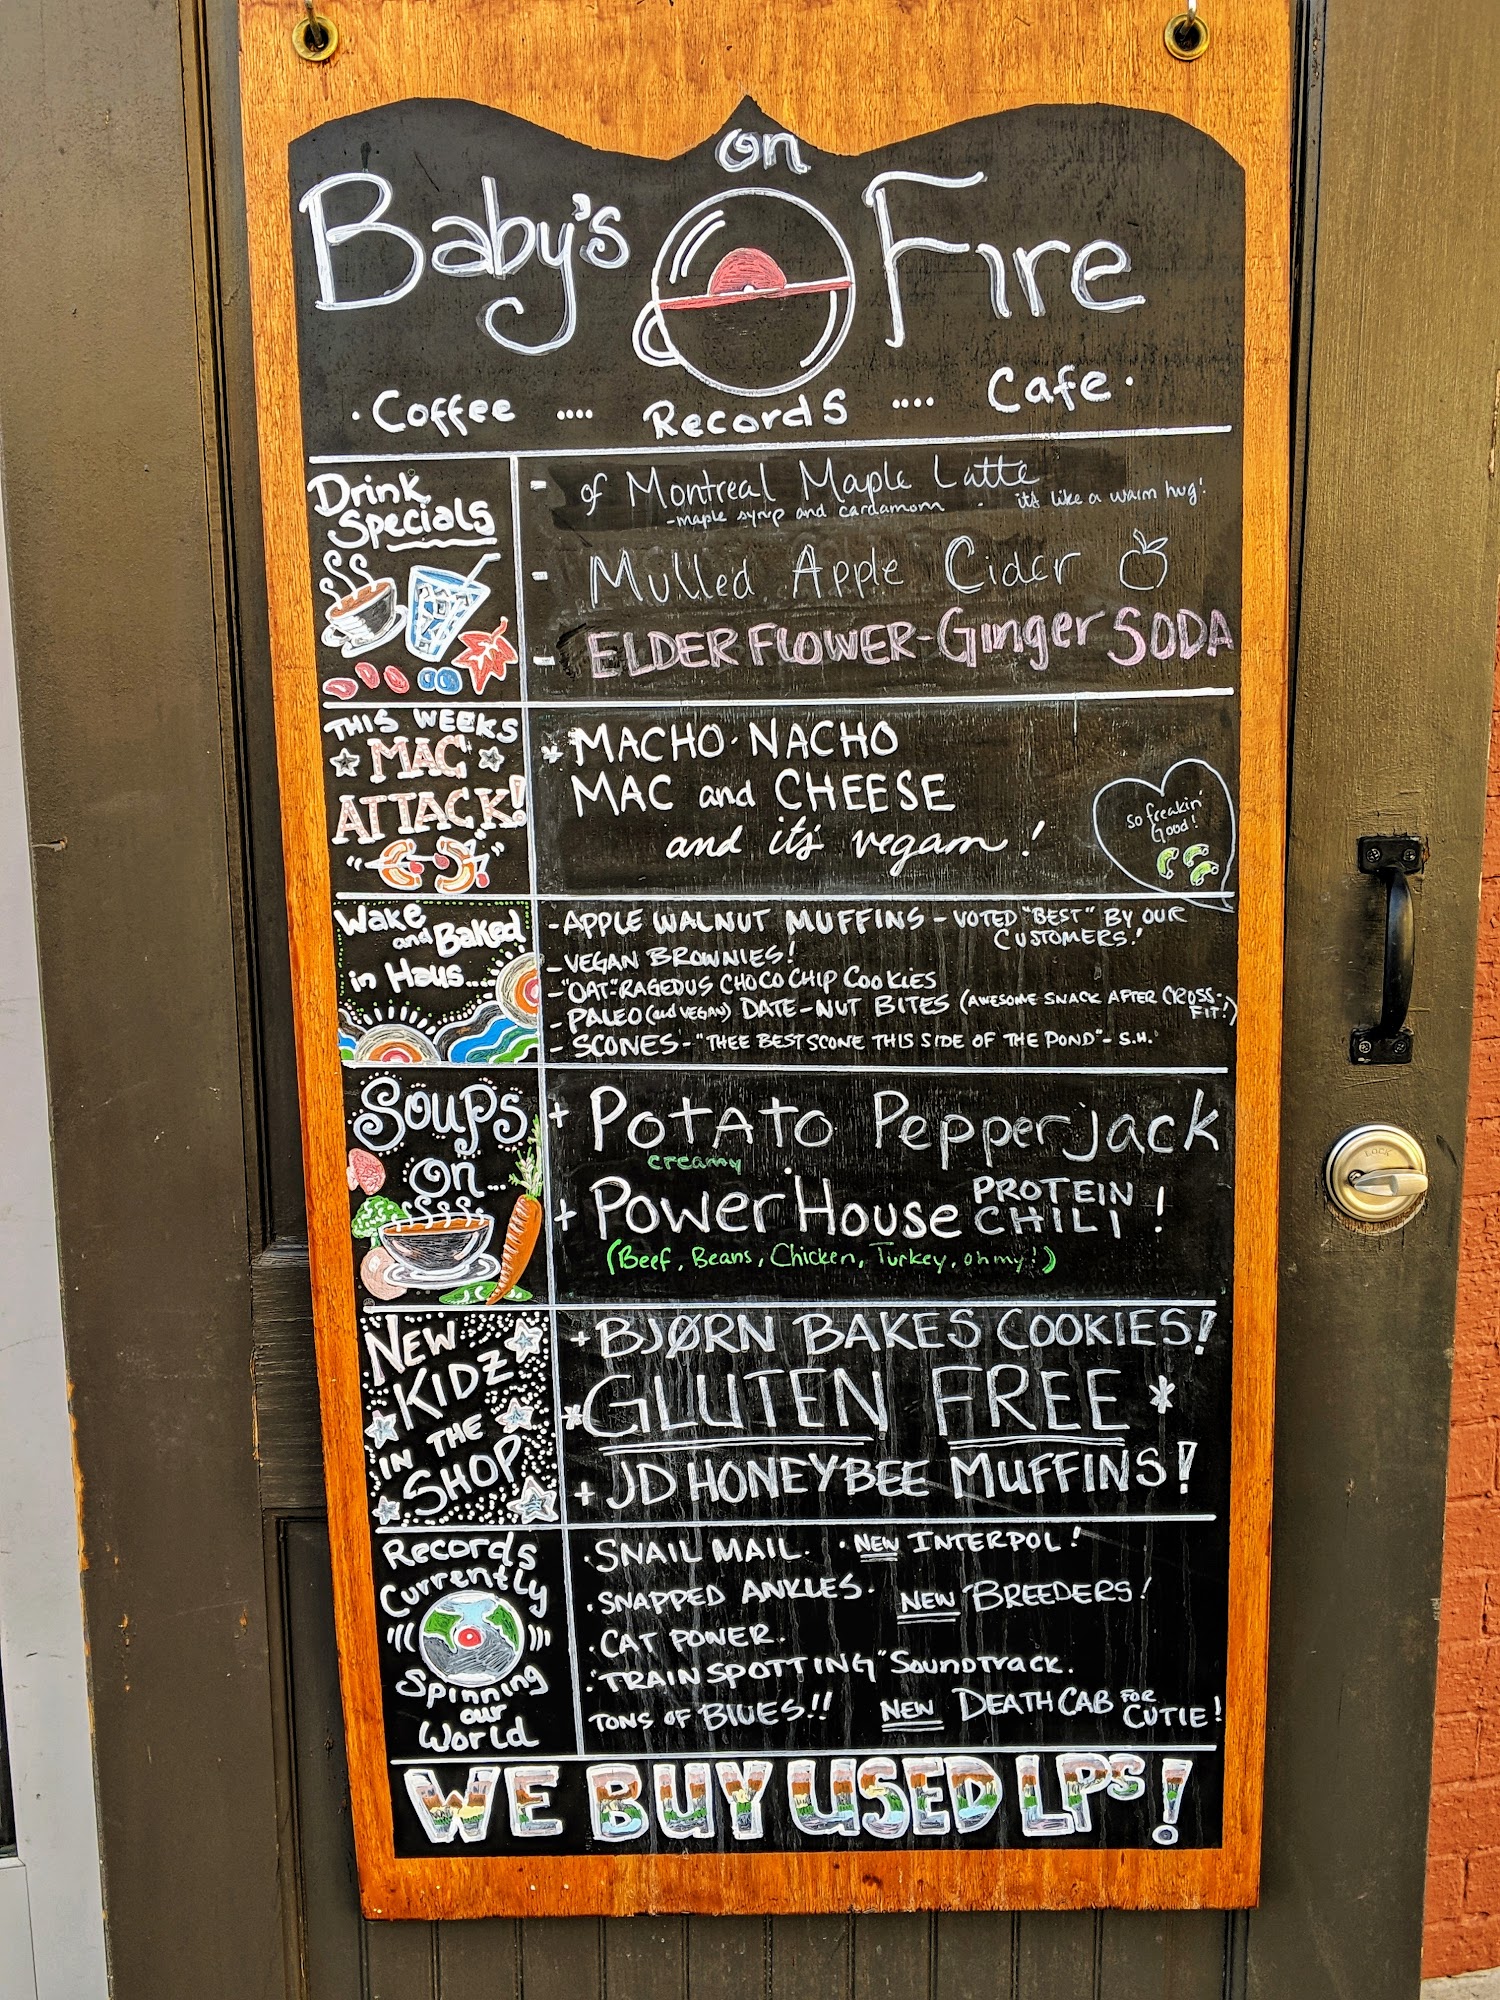 on
Baby's Fire
· Coffee .... Records .... Cafe ·
Drink
Specials
- of Montreal Maple Latte
-maple syrup and cardamom · it's like a warm hug!
- Mulled Apple Cider
- ELDERFLOWER-Ginger SODA
THIS WEEKS
MAC
ATTACK!
* MACHO · NACHO
MAC and CHEESE
and it's vegan!
so freakin'
Good!
Wake
and Baked
in Haus....
- APPLE WALNUT MUFFINS - VOTED "BEST" BY OUR
CUSTOMERS!
- VEGAN BROWNIES!
- "OAT"-RAGEOUS CHOCO CHIP COOKIES
- PALEO (and VEGAN) DATE-NUT BITES (AWESOME SNACK AFTER CROSS-
FIT!)
- SCONES - "THEE BEST SCONE THIS SIDE OF THE POND" - S.H.
Soups
on...
+ Potato Pepperjack
creamy
+ Power House PROTEIN
CHILI!
(Beef, Beans, Chicken, Turkey, oh my!)
NEW
KIDZ
IN THE
SHOP
+ BJØRN BAKES COOKIES!
*GLUTEN FREE*
+ JD HONEYBEE MUFFINS!
Records
Currently
Spinning
our
World
· SNAIL MAIL. · NEW INTERPOL!
· SNAPPED ANKLES. NEW BREEDERS!
· CAT POWER.
· "TRAINSPOTTING" Soundtrack.
TONS OF BLUES!! NEW DEATH CAB FOR
CUTIE!
WE BUY USED LPs!
LOCK